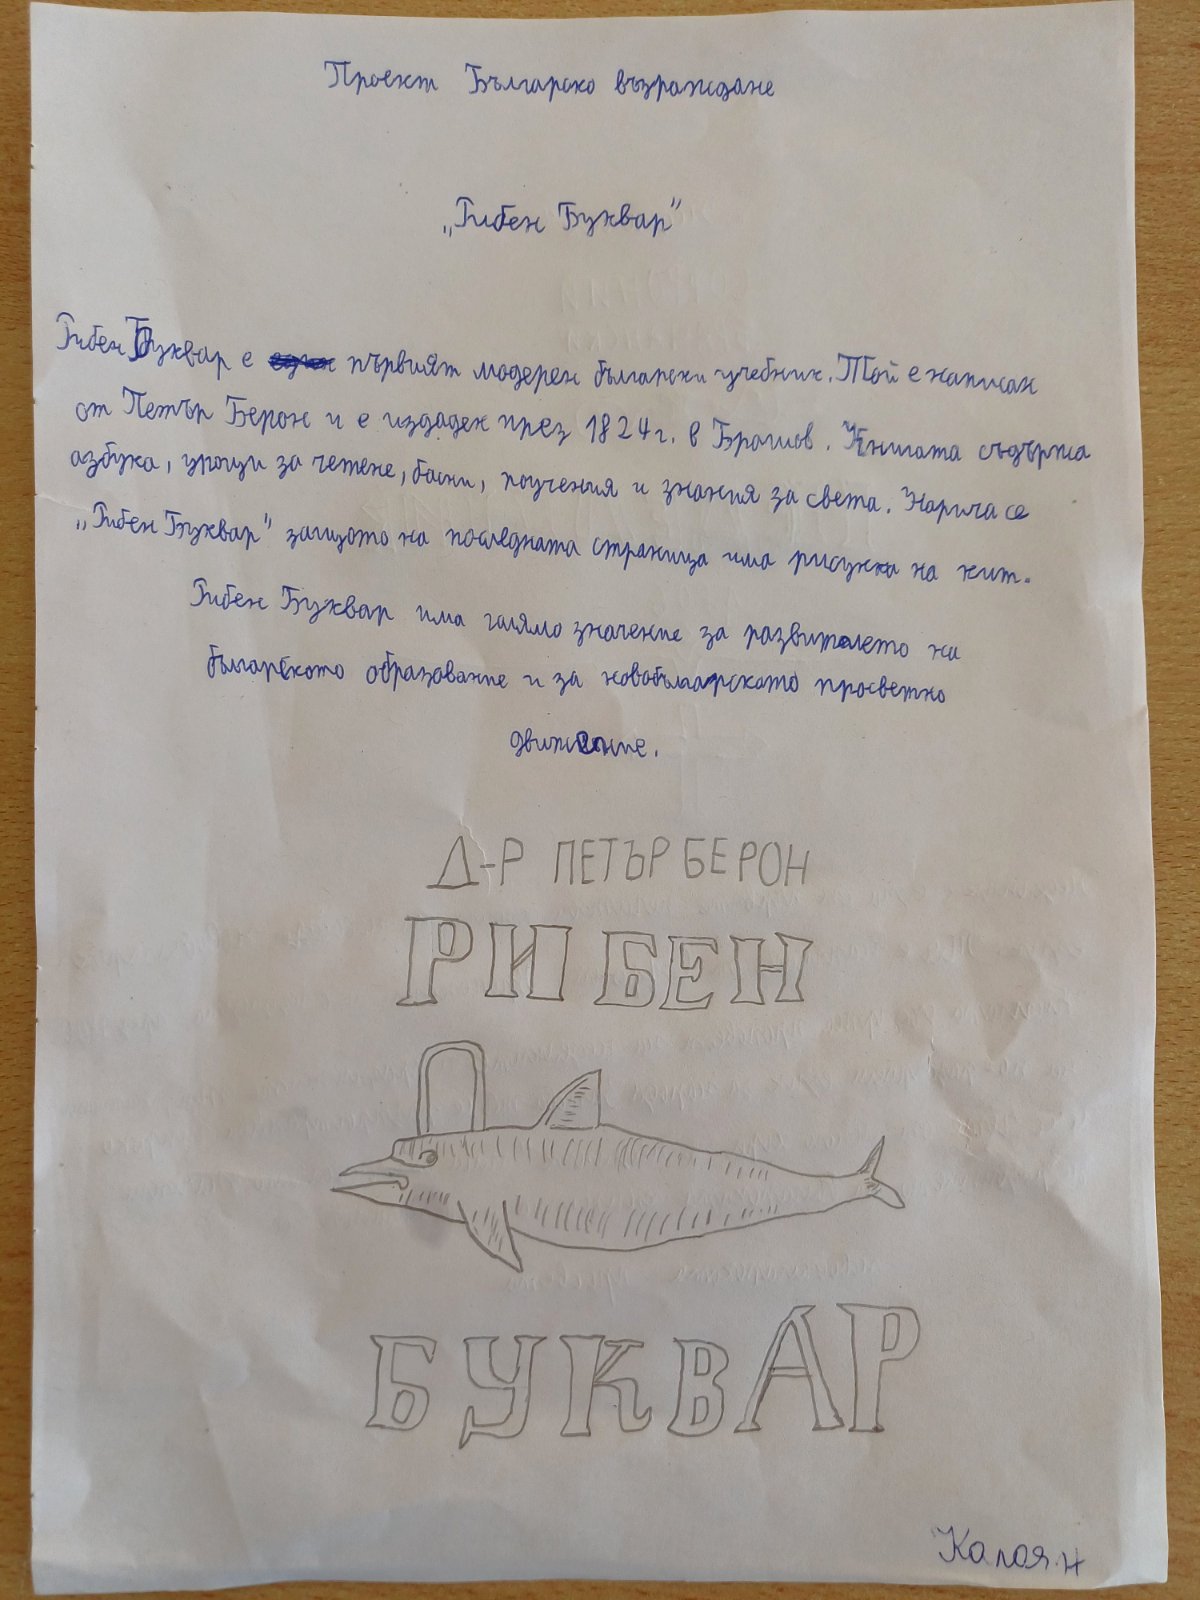 Проект Българско възраждане
„Рибен Буквар"
Рибен Буквар е първият модерен български учебник. Той е написан
от Петър Берон и е издаден през 1824г. в Брашов. Книгата съдържа
азбука, уроци за четене, басни, поучения и знания за света. Нарича се
„Рибен Буквар" защото на последната страница има рисунка на кит.
Рибен Буквар има голямо значение за развитието на
българското образование и за новобългарското просветно
движение.
Д-Р ПЕТЪР БЕРОН
РИБЕН
БУКВАР
Калоян